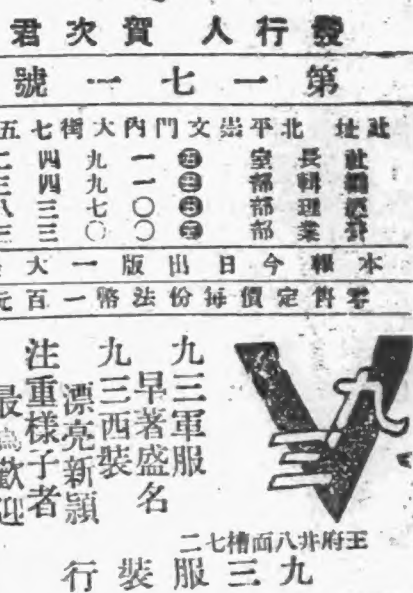 發行人 賀次君
第一七一號
社址 北平崇文門内大街七五
社長室 一九四二
編輯部 一九四三
經理部 〇七三八
營業部 〇〇三三
本報今日出版一大
零售定價每份法幣一百元
九三
九三軍服
早著盛名
九三西裝
漂亮新穎
注重樣子者
最為歡迎
王府井八面槽七二
九三服裝行